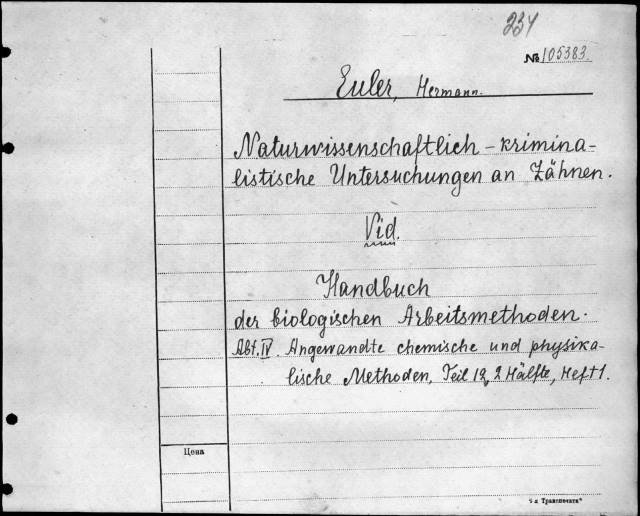 234
№ 105383.
Euler, Hermann.
Naturwissenschaftlich - krimina-
listische Untersuchungen an Zähnen.
Vid.
Handbuch
der biologischen Arbeitsmethoden.
Abt. IV. Angewandte chemische und physika-
lische Methoden, Teil 12, 2 Hälfte, Heft 1.
Цена
"я Транспечати"